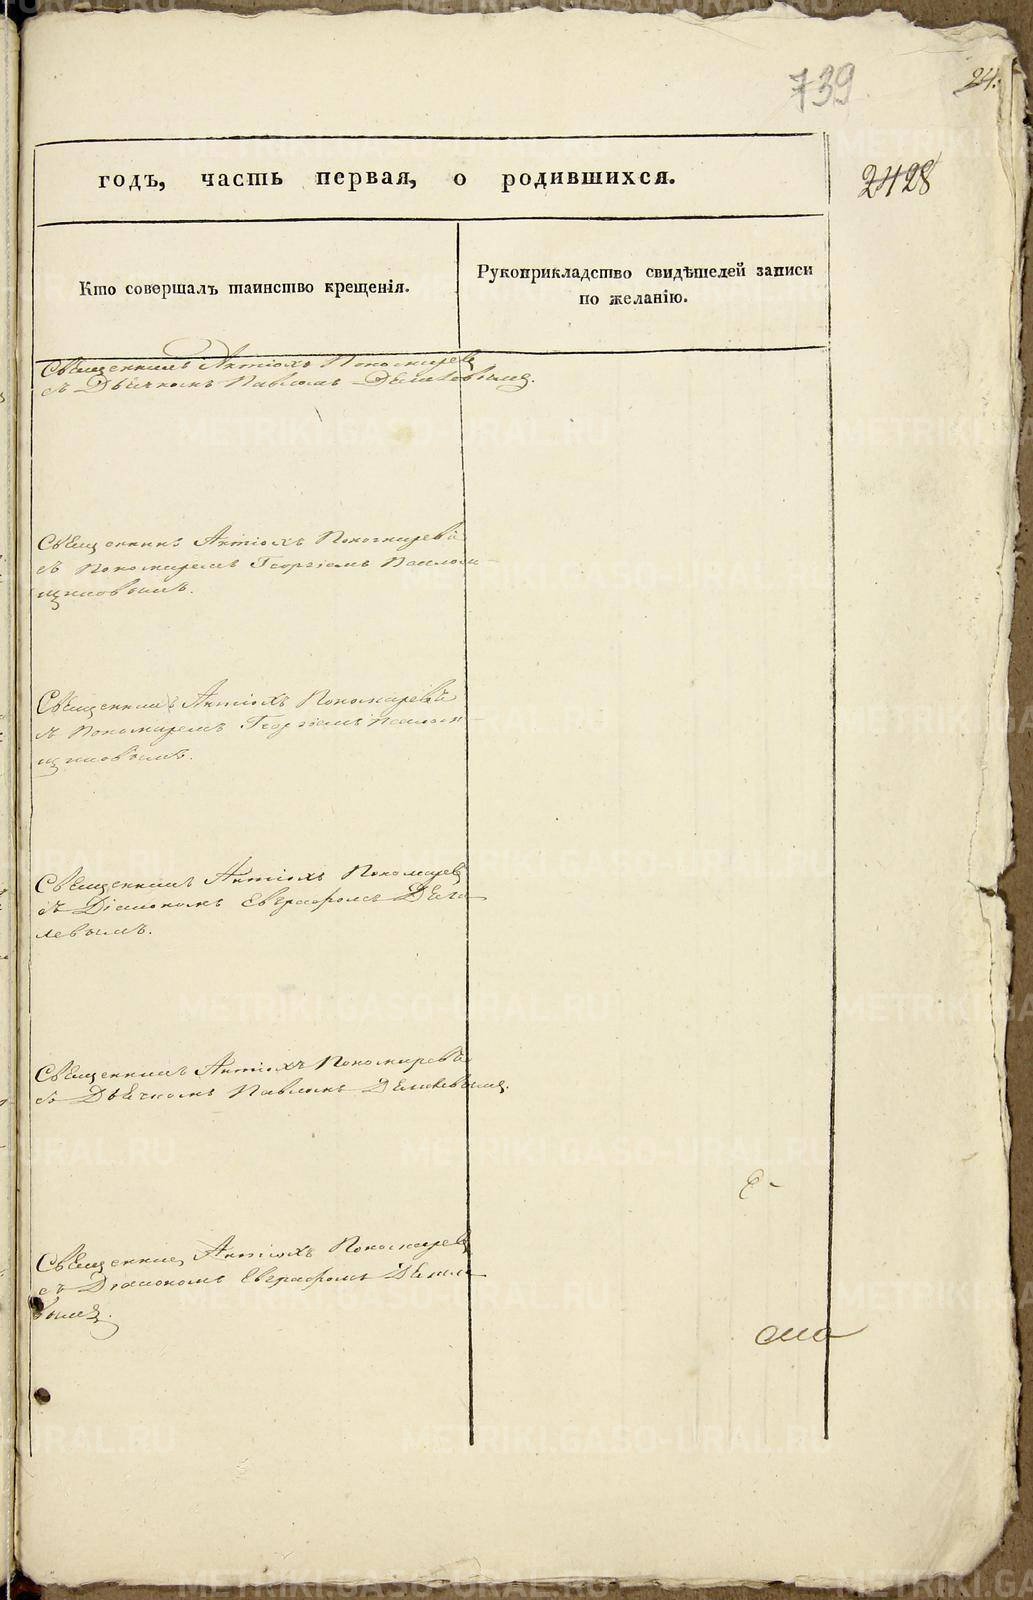 739
24.
2428
годъ, часть первая, о родившихся.
Кто совершалъ таинство крещенія.
Рукоприкладство свидѣтелей записи
по желанію.
Священникъ Антіохъ Пономаревъ
съ Дьячкомъ Павломъ
Священникъ Антіохъ Пономаревъ
съ Пономаремъ Георгіемъ
щиковымъ.
Священникъ Антіохъ Пономаревъ
съ Пономаремъ Георгіемъ
щиковымъ.
Священникъ Антіохъ Пономаревъ
съ Діакономъ Евграфомъ Дега
левымъ.
Священникъ Антіохъ Пономаревъ
съ Дьячкомъ Павломъ
Священникъ Антіохъ Пономаревъ
съ Діакономъ Евграфомъ
вымъ.
METRIKI.GASO-URAL.RU